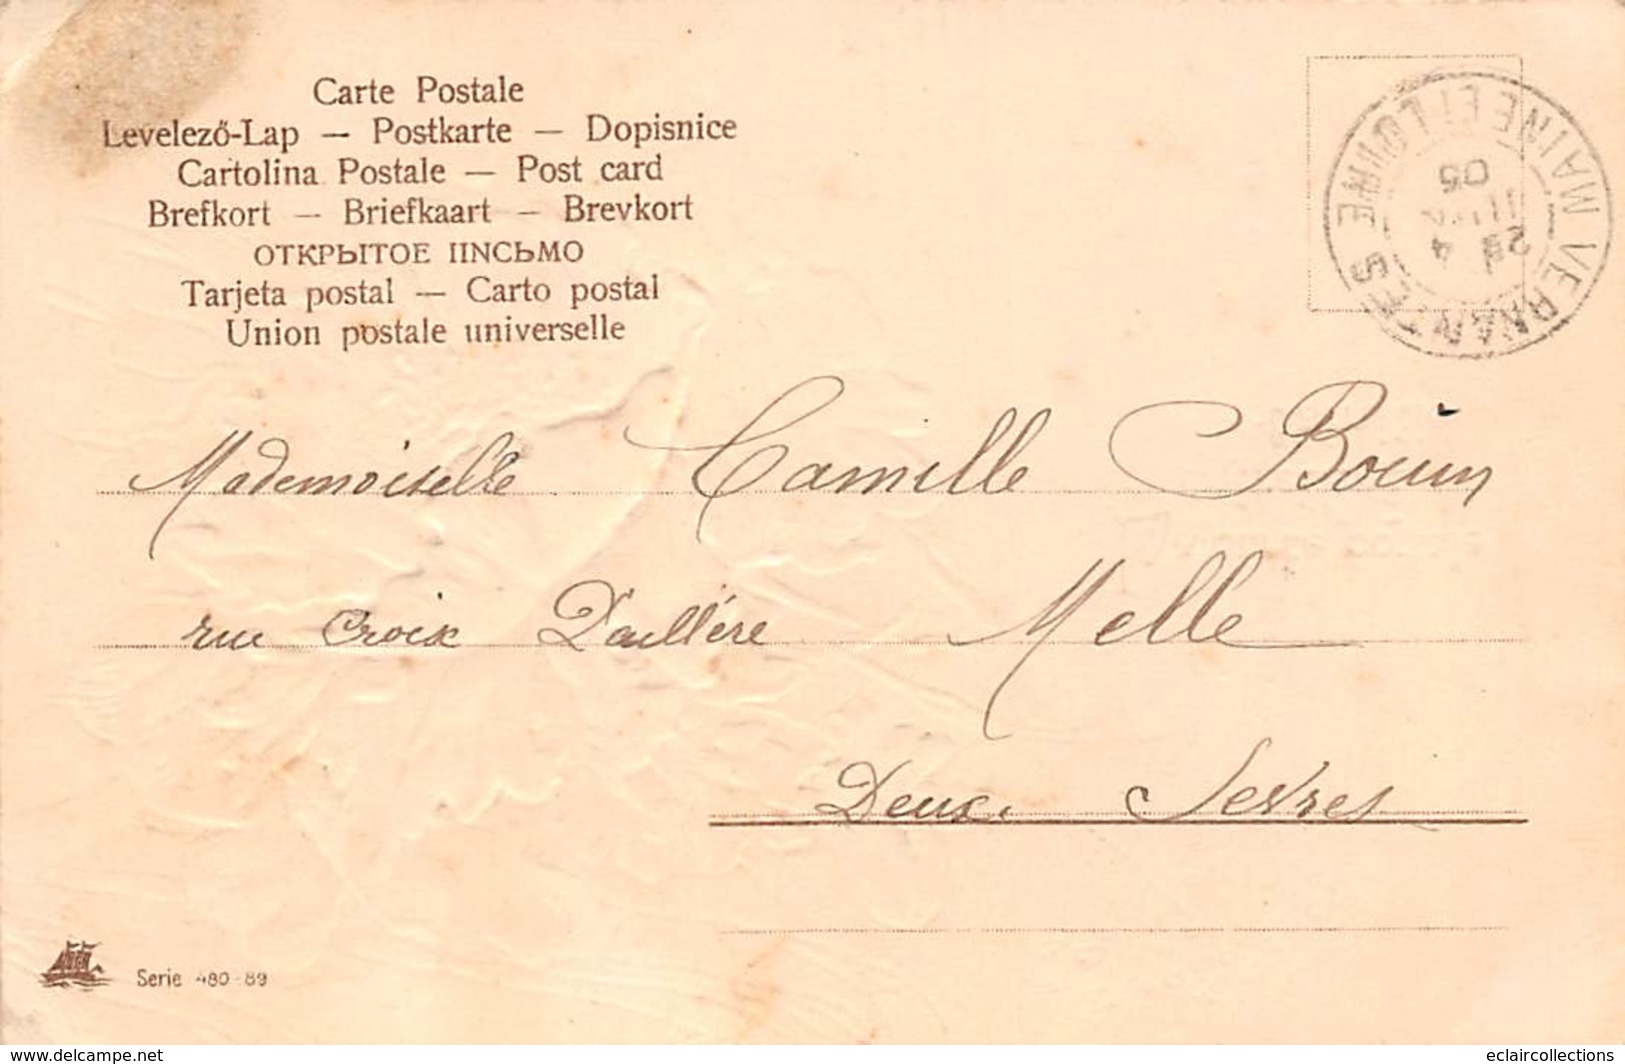 Carte Postale
Levelező-Lap — Postkarte — Dopisnice
Cartolina Postale — Post card
Brefkort — Briefkaart — Brevkort
ОТКРЫТОЕ ПИСЬМО
Tarjeta postal — Carto postal
Union postale universelle
VERNANTES
MAINE ET LOIRE
05
Mademoiselle Camille Bouin
rue Croix Daillère Melle
Deux Sevres
Serie 480-89
https://www.delcampe.net
eclaircollections